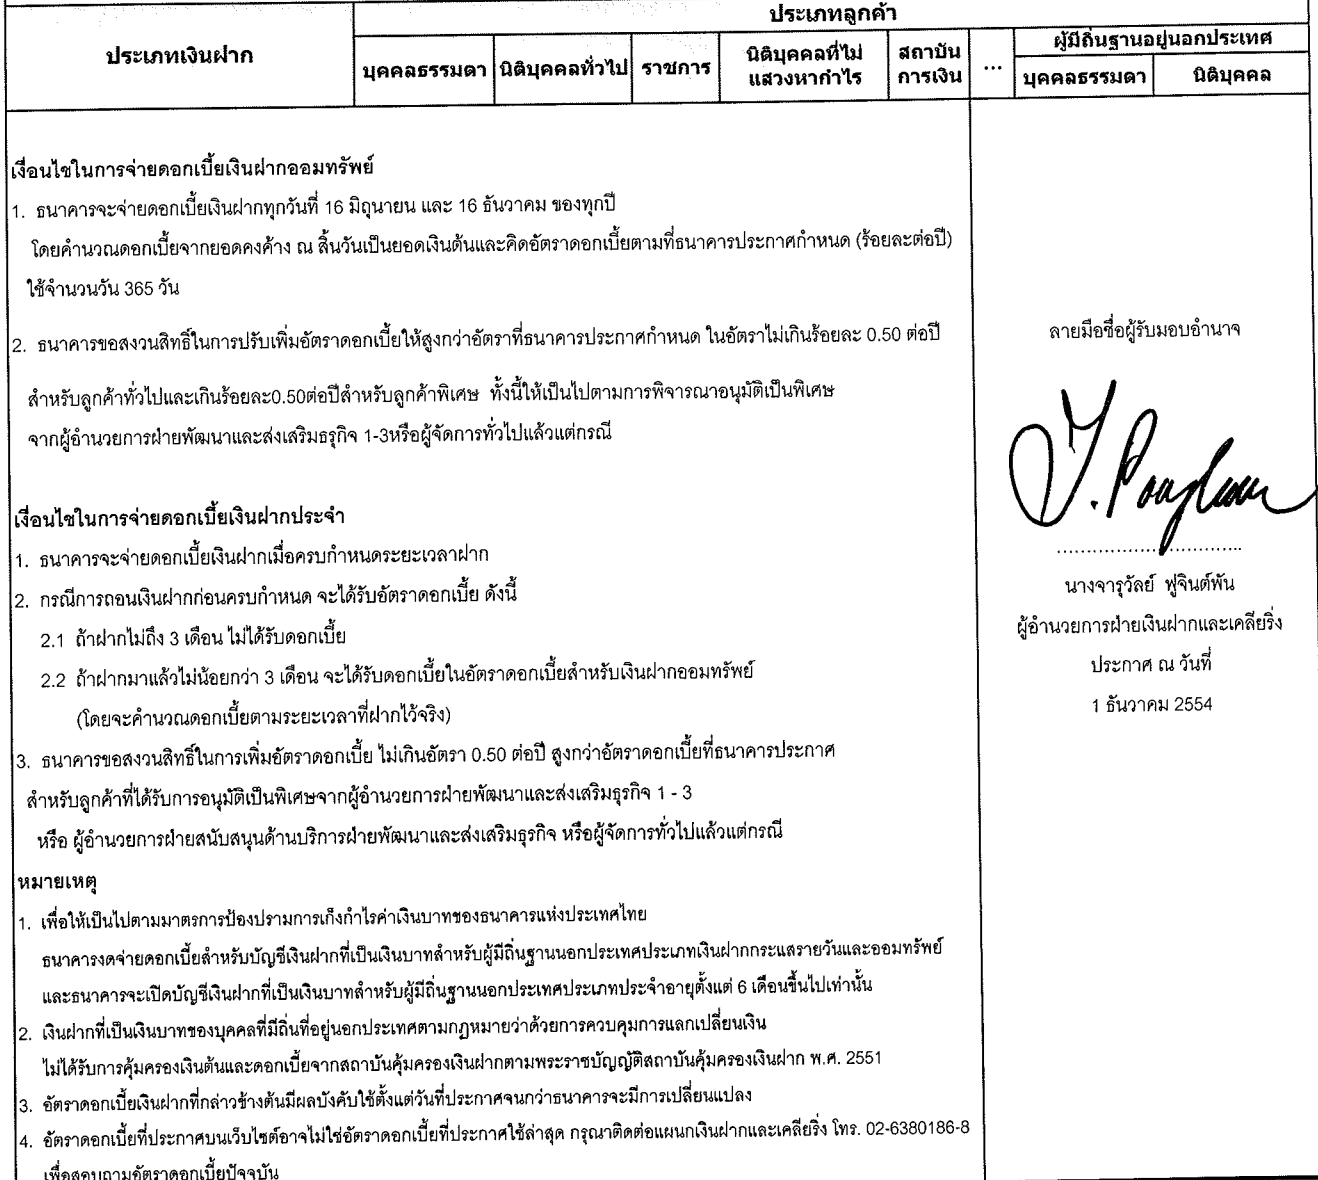 ประเภทลูกค้า
ประเภทเงินฝาก
บุคคลธรรมดา นิติบุคคลทั่วไป ราชการ นิติบุคคลที่ไม่แสวงหากำไร สถาบันการเงิน ... ผู้มีถิ่นฐานอยู่นอกประเทศ
บุคคลธรรมดา นิติบุคคล
เงื่อนไขในการจ่ายดอกเบี้ยเงินฝากออมทรัพย์
1. ธนาคารจะจ่ายดอกเบี้ยเงินฝากทุกวันที่ 16 มิถุนายน และ 16 ธันวาคม ของทุกปี
โดยคำนวณดอกเบี้ยจากยอดคงค้าง ณ สิ้นวันเป็นยอดเงินต้นและคิดอัตราดอกเบี้ยตามที่ธนาคารประกาศกำหนด (ร้อยละต่อปี)
ใช้จำนวนวัน 365 วัน
2. ธนาคารขอสงวนสิทธิ์ในการปรับเพิ่มอัตราดอกเบี้ยให้สูงกว่าอัตราที่ธนาคารประกาศกำหนด ในอัตราไม่เกินร้อยละ 0.50 ต่อปี
สำหรับลูกค้าทั่วไปและเกินร้อยละ0.50ต่อปีสำหรับลูกค้าพิเศษ ทั้งนี้ให้เป็นไปตามการพิจารณาอนุมัติเป็นพิเศษ
จากผู้อำนวยการฝ่ายพัฒนาและส่งเสริมธรุกิจ 1-3หรือผู้จัดการทั่วไปแล้วแต่กรณี
เงื่อนไขในการจ่ายดอกเบี้ยเงินฝากประจำ
1. ธนาคารจะจ่ายดอกเบี้ยเงินฝากเมื่อครบกำหนดระยะเวลาฝาก
2. กรณีการถอนเงินฝากก่อนครบกำหนด จะได้รับอัตราดอกเบี้ย ดังนี้
2.1 ถ้าฝากไม่ถึง 3 เดือน ไม่ได้รับดอกเบี้ย
2.2 ถ้าฝากมาแล้วไม่น้อยกว่า 3 เดือน จะได้รับดอกเบี้ยในอัตราดอกเบี้ยสำหรับเงินฝากออมทรัพย์
(โดยจะคำนวณดอกเบี้ยตามระยะเวลาที่ฝากไว้จริง)
3. ธนาคารขอสงวนสิทธิ์ในการเพิ่มอัตราดอกเบี้ย ไม่เกินอัตรา 0.50 ต่อปี สูงกว่าอัตราดอกเบี้ยที่ธนาคารประกาศ
สำหรับลูกค้าที่ได้รับการอนุมัติเป็นพิเศษจากผู้อำนวยการฝ่ายพัฒนาและส่งเสริมธุรกิจ 1 - 3
หรือ ผู้อำนวยการฝ่ายสนับสนุนด้านบริการฝ่ายพัฒนาและส่งเสริมธุรกิจ หรือผู้จัดการทั่วไปแล้วแต่กรณี
หมายเหตุ
1. เพื่อให้เป็นไปตามมาตรการป้องปรามการเก็งกำไรค่าเงินบาทของธนาคารแห่งประเทศไทย
ธนาคารงดจ่ายดอกเบี้ยสำหรับบัญชีเงินฝากที่เป็นเงินบาทสำหรับผู้มีถิ่นฐานนอกประเทศประเภทเงินฝากกระแสรายวันและออมทรัพย์
และธนาคารจะเปิดบัญชีเงินฝากที่เป็นเงินบาทสำหรับผู้มีถิ่นฐานนอกประเทศประเภทประจำอายุตั้งแต่ 6 เดือนขึ้นไปเท่านั้น
2. เงินฝากที่เป็นเงินบาทของบุคคลที่มีถิ่นที่อยู่นอกประเทศตามกฎหมายว่าด้วยการควบคุมการแลกเปลี่ยนเงิน
ไม่ได้รับการคุ้มครองเงินต้นและดอกเบี้ยจากสถาบันคุ้มครองเงินฝากตามพระราชบัญญัติสถาบันคุ้มครองเงินฝาก พ.ศ. 2551
3. อัตราดอกเบี้ยเงินฝากที่กล่าวข้างต้นมีผลบังคับใช้ตั้งแต่วันที่ประกาศจนกว่าธนาคารจะมีการเปลี่ยนแปลง
4. อัตราดอกเบี้ยที่ประกาศบนเว็บไซต์อาจไม่ใช่อัตราดอกเบี้ยที่ประกาศใช้ล่าสุด กรุณาติดต่อแผนกเงินฝากและเคลียริ่ง โทร. 02-6380186-8
เพื่อสอบถามอัตราดอกเบี้ยปัจจุบัน
ลายมือชื่อผู้รับมอบอำนาจ
นางจารุวัลย์ ฟูจินต์พัน
ผู้อำนวยการฝ่ายเงินฝากและเคลียริ่ง
ประกาศ ณ วันที่
1 ธันวาคม 2554